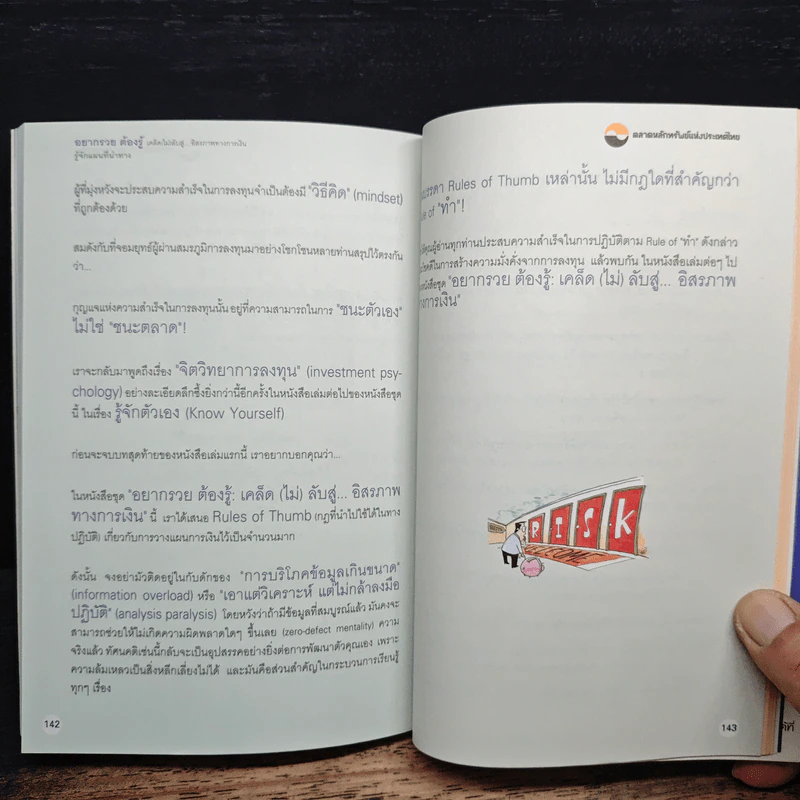 อยากรวย ต้องรู้ เคล็ด(ไม่)ลับสู่...อิสรภาพทางการเงิน
รู้จักแผนที่นำทาง
ผู้ที่มุ่งหวังจะประสบความสำเร็จในการลงทุนจำเป็นต้องมี "วิธีคิด" (mindset)
ที่ถูกต้องด้วย
สมดังกับที่จอมยุทธ์ผู้ผ่านสมรภูมิการลงทุนมาอย่างโชกโชนหลายท่านสรุปไว้ตรงกัน
ว่า...
กุญแจแห่งความสำเร็จในการลงทุนนั้น อยู่ที่ความสามารถในการ "ชนะตัวเอง"
ไม่ใช่ "ชนะตลาด"!
เราจะกลับมาพูดถึงเรื่อง "จิตวิทยาการลงทุน" (investment psy-
chology) อย่างละเอียดลึกซึ้งยิ่งกว่านี้อีกครั้งในหนังสือเล่มต่อไปของหนังสือชุด
นี้ ในเรื่อง รู้จักตัวเอง (Know Yourself)
ก่อนจะจบบทสุดท้ายของหนังสือเล่มแรกนี้ เราอยากบอกคุณว่า...
ในหนังสือชุด "อยากรวย ต้องรู้: เคล็ด (ไม่) ลับสู่... อิสรภาพ
ทางการเงิน" นี้ เราได้เสนอ Rules of Thumb (กฎที่นำไปใช้ได้ในทาง
ปฏิบัติ) เกี่ยวกับการวางแผนการเงินไว้เป็นจำนวนมาก
ดังนั้น จงอย่ามัวติดอยู่ในกับดักของ "การบริโภคข้อมูลเกินขนาด"
(information overload) หรือ "เอาแต่วิเคราะห์ แต่ไม่กล้าลงมือ
ปฏิบัติ" (analysis paralysis) โดยหวังว่าถ้ามีข้อมูลที่สมบูรณ์แล้ว มันคงจะ
สามารถช่วยให้ไม่เกิดความผิดพลาดใดๆ ขึ้นเลย (zero-defect mentality) ความ
จริงแล้ว ทัศนคติเช่นนี้กลับจะเป็นอุปสรรคอย่างยิ่งต่อการพัฒนาตัวคุณเอง เพราะ
ความล้มเหลวเป็นสิ่งหลีกเลี่ยงไม่ได้ และมันคือส่วนสำคัญในกระบวนการเรียนรู้
ทุกๆ เรื่อง
142
ตลาดหลักทรัพย์แห่งประเทศไทย
บรรดา Rules of Thumb เหล่านั้น ไม่มีกฎใดที่สำคัญกว่า
of "ทำ"!
คุณผู้อ่านทุกท่านประสบความสำเร็จในการปฏิบัติตาม Rule of "ทำ" ดังกล่าว
ในการสร้างความมั่งคั่งจากการลงทุน แล้วพบกัน ในหนังสือเล่มต่อๆ ไป
หนังสือชุด "อยากรวย ต้องรู้: เคล็ด (ไม่) ลับสู่... อิสรภาพ
ทางการเงิน"
RISK
WELCOME
143